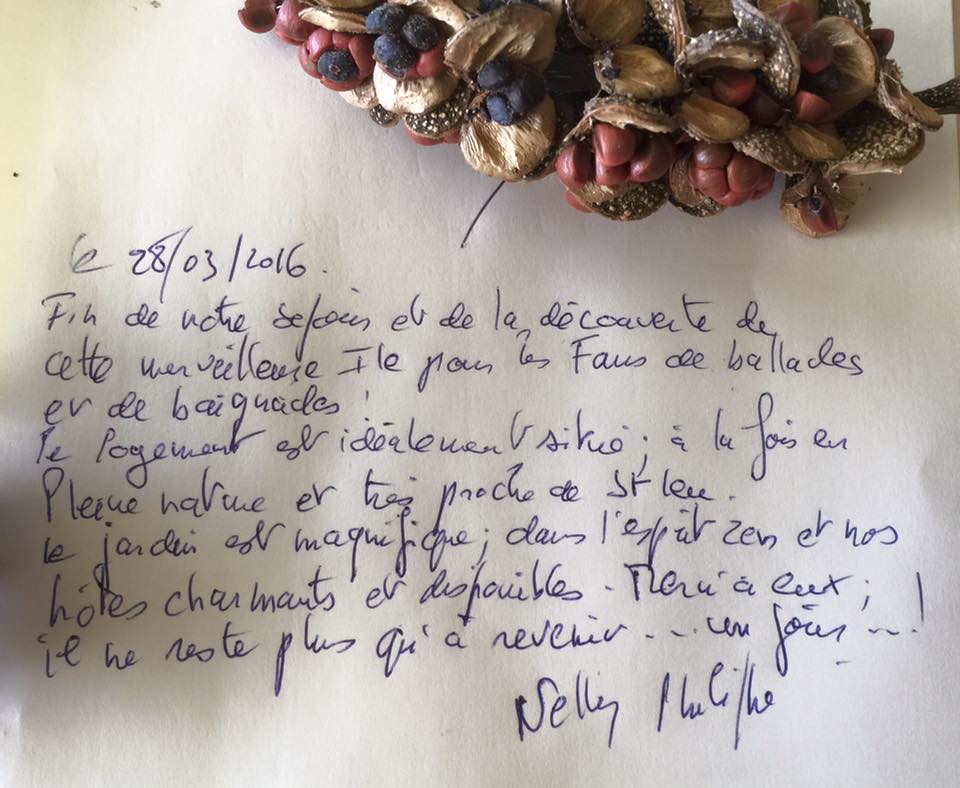 le 28/03/2016.
Fin de notre séjour et de la découverte de
cette merveilleuse Ile pour les Fans de ballades
et de baignades !
Le logement est idéalement situé ; à la fois en
Pleine nature et très proche de St leu.
le jardin est magnifique ; dans l'esprit zen et nos
hôtes charmants et disponibles. Merci à eux ;
il ne reste plus qu'à revenir ... un jour ... !
Nelly Philippe